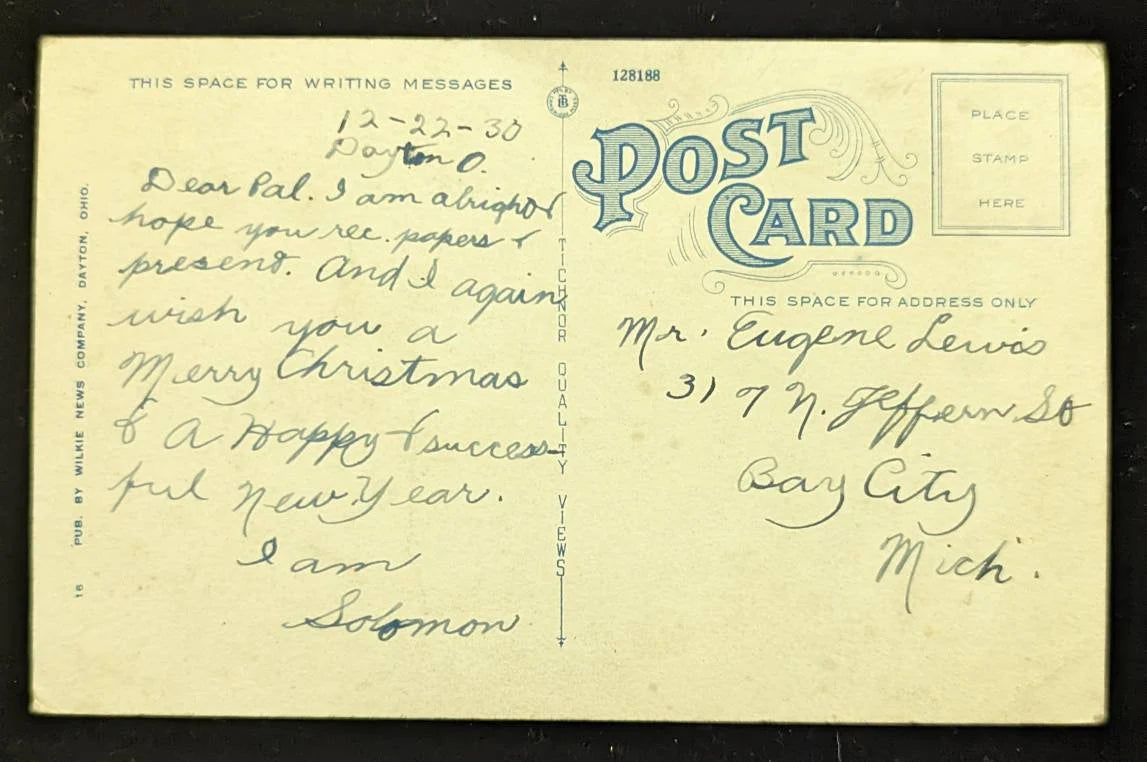 THIS SPACE FOR WRITING MESSAGES
12-22-30
Dayton O.
Dear Pal. I am alright &
hope you rec. papers &
present. And I again
wish you a
Merry Christmas
& A Happy & success-
ful New Year.
I am
Solomon
16 PUB. BY WILKIE NEWS COMPANY, DAYTON, OHIO.
TICHNOR QUALITY VIEWS
128188
POST
CARD
PLACE
STAMP
HERE
THIS SPACE FOR ADDRESS ONLY
Mr. Eugene Lewis
317 N. Jeffern St
Bay City
Mich.